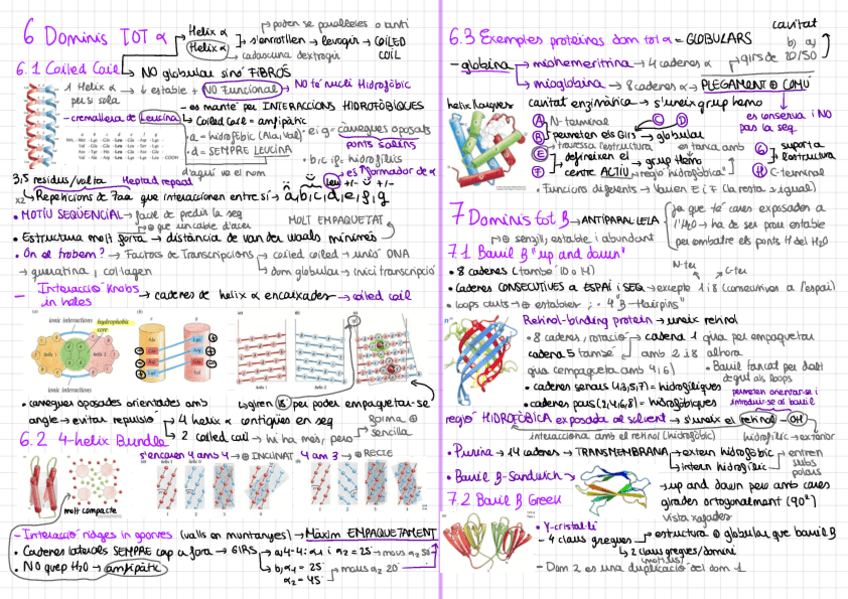 6 Dominis TOT α
Helix α
Helix α
poden ser paral·leles o anti
s'enrotllen → levogir → COILED COIL
cadascuna dextrogir
6.1 Coiled Coil
NO globular sinó FIBRÓS
1 Helix α per si sola → ↓ estable + NO Funcional → NO té nucli Hidrofòbic
es manté per INTERACCIONS HIDROFÒBIQUES
- cremallera de Leucina
Coiled coil = amfipàtic
a = hidrofòbic (Ala, Val)
e i g = càrregues oposades
ponts salins
d = SEMPRE LEUCINA
b, c i f = hidrofílics
d'aquí ve el nom
3,5 residus/volta
Heptad repeat
es formador de α
x2 Repeticions de 7aa que interaccionen entre sí → a, b, c, d, e, f, g
• MOTIU SEQÜENCIAL → fàcil de predir la seq
MOLT EMPAQUETAT
⊕ que un cable d'acer
• Estructura molt forta → distància de van der waals mínimes
• On el trobem? → Factors de Transcripció → coiled coil → unió DNA
→ queratina, col·lagen
dom globular → inici transcripció
- Interacció Knobs in holes → cadenes de helix α encaixades → coiled coil
ionic interactions
hydrophobic core
ionic interactions
helix 1
helix 2
• càrregues oposades orientades amb angle → evitar repulsió
giren 18° per poder empaquetar-se
4 helix α contigües en seq
2 coiled coil → hi ha més, però
forma ⊕ sencilla
6.2 4-helix Bundle
s'encaren 4 amb 4 → ⊕ INCLINAT
4 am 3 → ⊕ RECTE
molt compacte
- Interacció ridges in grooves (valls en muntanyes) → Màxim EMPAQUETAMENT
• Cadenes laterals SEMPRE cap a fora → GIRS
a) 4-4: α1 i α2 = 25° → mous α2 50°
• NO quep H₂O → amfipàtic
b) α1 = 25° α2 = 45° mous α2 20°
6.3 Exemples proteïnes dom tot α = GLOBULARS
cavitat
b) a)
girs de 20/50
- globina
miohemeritrina → 4 cadenes α
mioglobina → 8 cadenes α → PLEGAMENT ⊕ COMÚ
helix llargues
cavitat enzimàtica → s'uneix grup hemo
es conserva i NO pas la seq.
A N-terminal
C D
B permeten els Girs → globular
travessa l'estructura
es tanca amb
G suporta l'estructura
E definexen el grup Hemo
F centre ACTIU → regió hidrofòbica
H C-terminal
• Funcions diferents → Varien E i F (la resta = igual)
7 Dominis tot β → ANTIPARAL·LELA
ja que té cares exposades a l'H₂O → ha de ser prou estable per combatre els ponts H del H₂O
⊕ senzill, estable i abundant
7.1 Barril β "up and down"
N-ter
C-ter
• 8 cadenes (també 10 o 14)
• Cadenes CONSECUTIVES a ESPAI i SEQ → excepte 1 i 8 (consecutives a l'espai)
• loops curts → ⊕ estables; 4 "β-Hairpins"
Retinol-binding protein → uneix retinol
• 8 cadenes, rotació
cadena 1 gira per empaquetar amb 2 i 8 alhora
cadena 5 també gira (empaqueta amb 4 i 6)
• Barril tancat per dalt degut als loops
• cadenes senars (1,3,5,7) = hidrofíliques
permeten orientar-se i introduir-se al barril
• cadenes pars (2,4,6,8) = hidrofòbiques
regió HIDROFÒBICA exposada al solvent → s'uneix el retinol - OH
interacciona amb el retinol (hidrofòbic)
hidrofílic → exterior
• Purina → 14 cadenes → TRANSMEMBRANA
extern hidrofòbic
intern hidrofílic
entren subs polars
• Barril β-Sandwich
up and down però amb cares girades ortogonalment (90°)
7.2 Barril β Greek
vista xafades
• γ-cristal·lí
- 4 claus gregues
estructura ⊕ globular que barril β
2 claus gregues/domini
(motius)
- Dom 2 es una duplicació del dom 1